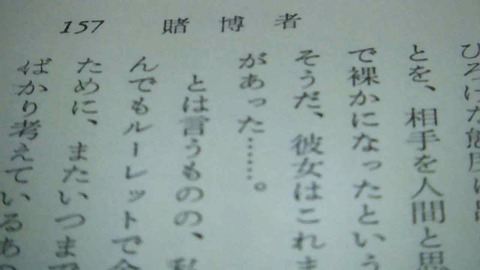 157 賭博者
ひろげた態度に出
とを、相手を人間と思
で裸かになったという
そうだ、彼女はこれま
があった……。
とは言うものの、私
んでもルーレットで金
ために、またいつまで
ばかり考えているあ